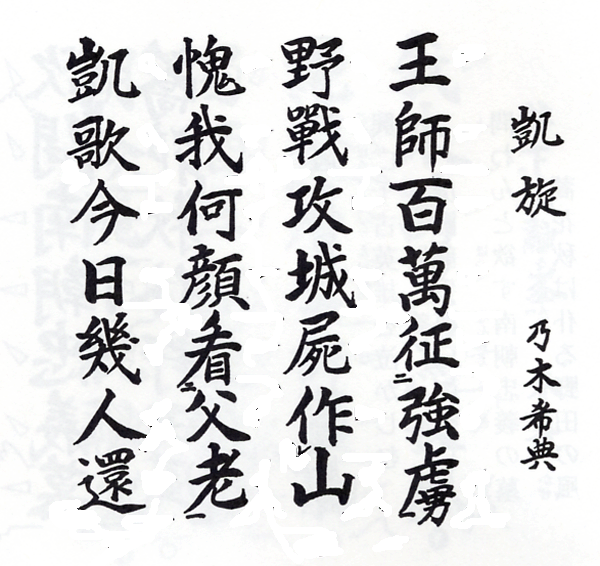 凱旋 乃木希典
王師百萬征二強虜一
野戰攻城屍作レ山
愧我何顔看二父老一
凱歌今日幾人還